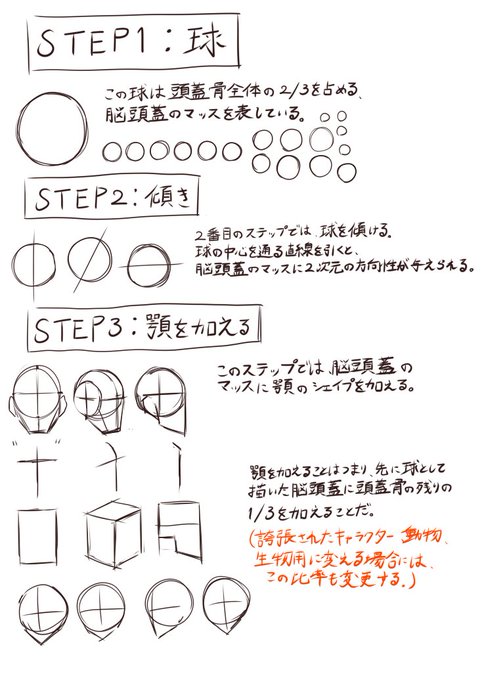 STEP1：球
この球は頭蓋骨全体の2/3を占める、
脳頭蓋のマッスを表している。
STEP2：傾き
2番目のステップでは、球を傾ける。
球の中心を通る直線を引くと、
脳頭蓋のマッスに2次元の方向性が与えられる。
STEP3：顎を加える
このステップでは脳頭蓋の
マッスに顎のシェイプを加える。
顎を加えることはつまり、先に球として
描いた脳頭蓋に頭蓋骨の残りの
1/3を加えることだ。
(誇張されたキャラクター、動物、
生物用に変える場合には、
この比率も変更する。)